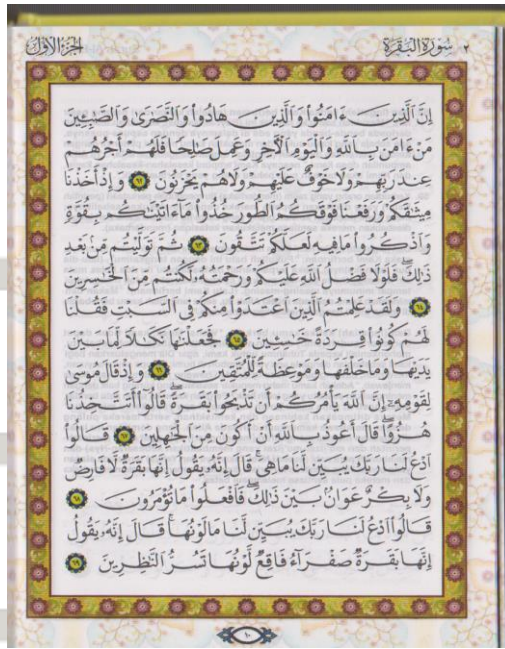 ٢ سُورَةُ البَقَرَةِ
الجُزءُ الأَوَّلُ
إِنَّ ٱلَّذِينَ ءَامَنُواْ وَٱلَّذِينَ هَادُواْ وَٱلنَّصَٰرَىٰ وَٱلصَّٰبِـِٔينَ
مَنْ ءَامَنَ بِٱللَّهِ وَٱلْيَوْمِ ٱلْأٓخِرِ وَعَمِلَ صَٰلِحًا فَلَهُمْ أَجْرُهُمْ
عِندَ رَبِّهِمْ وَلَا خَوْفٌ عَلَيْهِمْ وَلَا هُمْ يَحْزَنُونَ ٦٢ وَإِذْ أَخَذْنَا
مِيثَٰقَكُمْ وَرَفَعْنَا فَوْقَكُمُ ٱلطُّورَ خُذُواْ مَآ ءَاتَيْنَٰكُم بِقُوَّةٍ
وَٱذْكُرُواْ مَا فِيهِ لَعَلَّكُمْ تَتَّقُونَ ٦٣ ثُمَّ تَوَلَّيْتُم مِّنۢ بَعْدِ
ذَٰلِكَ ۖ فَلَوْلَا فَضْلُ ٱللَّهِ عَلَيْكُمْ وَرَحْمَتُهُۥ لَكُنتُم مِّنَ ٱلْخَٰسِرِينَ
٦٤ وَلَقَدْ عَلِمْتُمُ ٱلَّذِينَ ٱعْتَدَوْاْ مِنكُمْ فِى ٱلسَّبْتِ فَقُلْنَا
لَهُمْ كُونُواْ قِرَدَةً خَٰسِـِٔينَ ٦٥ فَجَعَلْنَٰهَا نَكَٰلًا لِّمَا بَيْنَ
يَدَيْهَا وَمَا خَلْفَهَا وَمَوْعِظَةً لِّلْمُتَّقِينَ ٦٦ وَإِذْ قَالَ مُوسَىٰ
لِقَوْمِهِۦٓ إِنَّ ٱللَّهَ يَأْمُرُكُمْ أَن تَذْبَحُواْ بَقَرَةً ۖ قَالُوٓاْ أَتَتَّخِذُنَا
هُزُوًا ۖ قَالَ أَعُوذُ بِٱللَّهِ أَنْ أَكُونَ مِنَ ٱلْجَٰهِلِينَ ٦٧ قَالُواْ
ٱدْعُ لَنَا رَبَّكَ يُبَيِّن لَّنَا مَا هِىَ ۚ قَالَ إِنَّهُۥ يَقُولُ إِنَّهَا بَقَرَةٌ لَّا فَارِضٌ
وَلَا بِكْرٌ عَوَانٌۢ بَيْنَ ذَٰلِكَ ۖ فَٱفْعَلُواْ مَا تُؤْمَرُونَ ٦٨
قَالُواْ ٱدْعُ لَنَا رَبَّكَ يُبَيِّن لَّنَا مَا لَوْنُهَا ۚ قَالَ إِنَّهُۥ يَقُولُ
إِنَّهَا بَقَرَةٌ صَفْرَآءُ فَاقِعٌ لَّوْنُهَا تَسُرُّ ٱلنَّٰظِرِينَ ٦٩
١٠